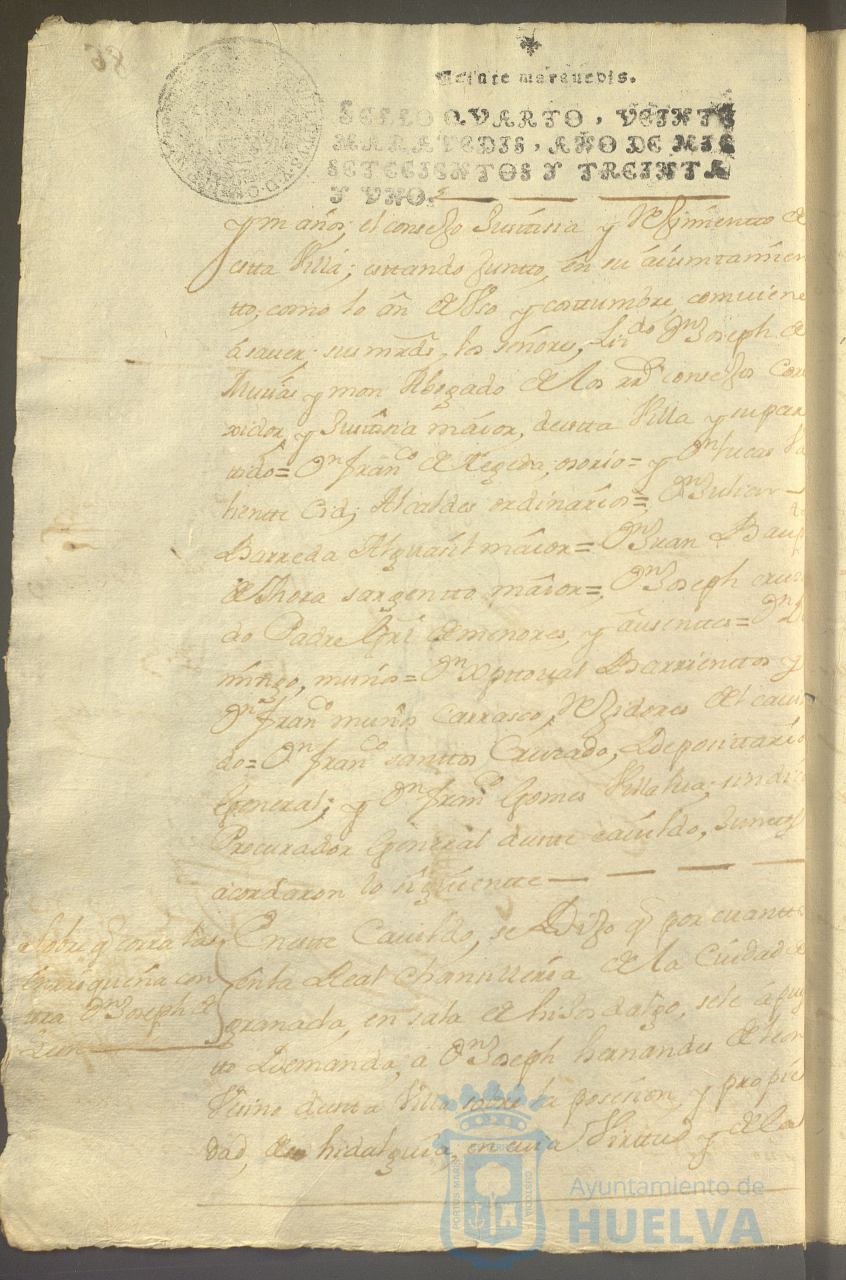 56
Veinte maravedis.
SELLO QVARTO, VEINTE
MARAVEDIS, AÑO DE MIL
SETECIENTOS Y TREINTA
Y VNO.
y m años; el consejo Justisia y Rejimientto de
estta Villa; esttando juntto, en su aiuntamien
tto, como lo an de Vso y costtumbre, comviene
a saver; sus mrds, los señores, Lizdo Dn Joseph de
y mon Abogado de los rs consejos Corre
xidor y Justisia maior, de estta Villa y su par
tido= Dn Franco de Texeda, osorio= y Dn Lucas
Cid; Alcaldes ordinarios= Dn Julian
Barreda Alguasil maior= Dn Juan Baup
de Thora sargentto maior= Dn Joseph cruza
do Padre Gri de menores, y ausenttes= Dn Do
mingo, muños= Dn Xpttoval Barrienttos y
Dn Franco muños Carrasco, Rejidores del cavil
do= Dn Franco santtos Cruzado, Deposittario
General; y Dn Franco Gomes Villalva; sindico
Procurador General de estte cavildo, Junttos
acordaron lo siguientte
Sobre q corra la
con
ttra Dn Joseph de
Leon
En estte Cavildo, se Dijo q por cuantto
en la Real Chansilleria de la Ciudad de
granada, en sala de hijosdalgo, se le a pues
to Demanda, a Dn Joseph hernandes de leon
Vesino de estta Villa sobre la posesion, y propie
dad, de su hidalguia, en cuia Virttud y de la
PORTUS MARIS
CUSTODIA
Ayuntamiento de
HUELVA